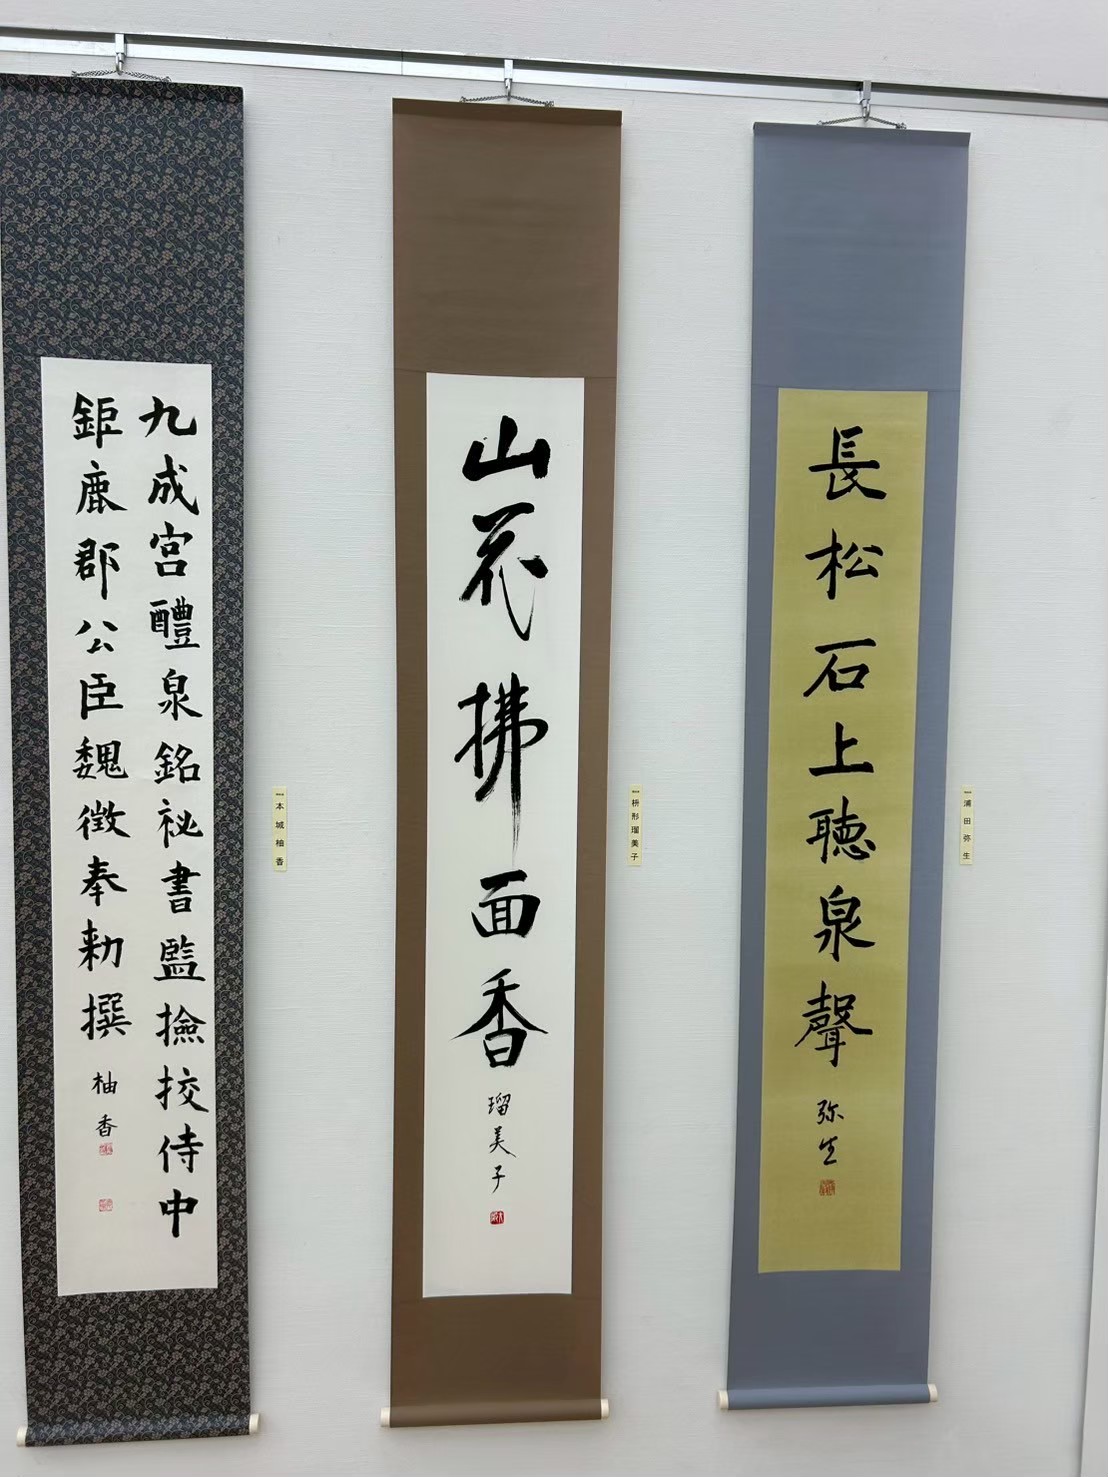 長松石上聴泉聲
弥生
浦田弥生
山花拂面香
瑠美子
枡形瑠美子
九成宮醴泉銘祕書監撿挍侍中
鉅鹿郡公臣魏徴奉勅撰
柚香
本城柚香